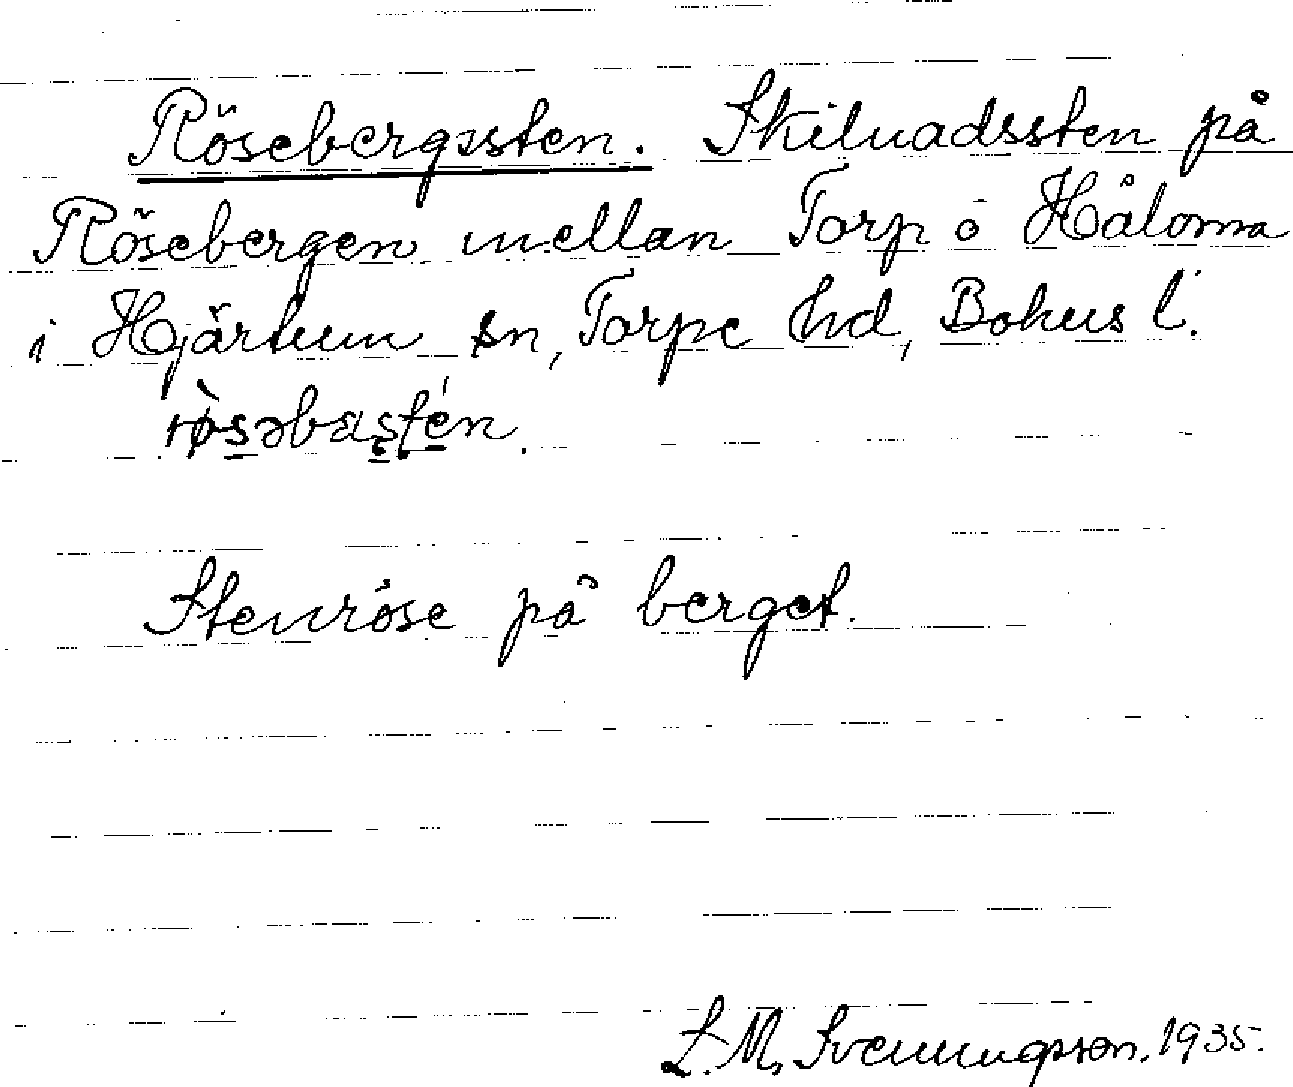 Rösebergssten. Skilnadssten på
Rösebergen mellan Torp o Håloma
i Hjärtum sn, Torpe hd, Bohus l.
røsəbaʂtén.
Stenröse på berget.
L. M. Svenungsson. 1935.